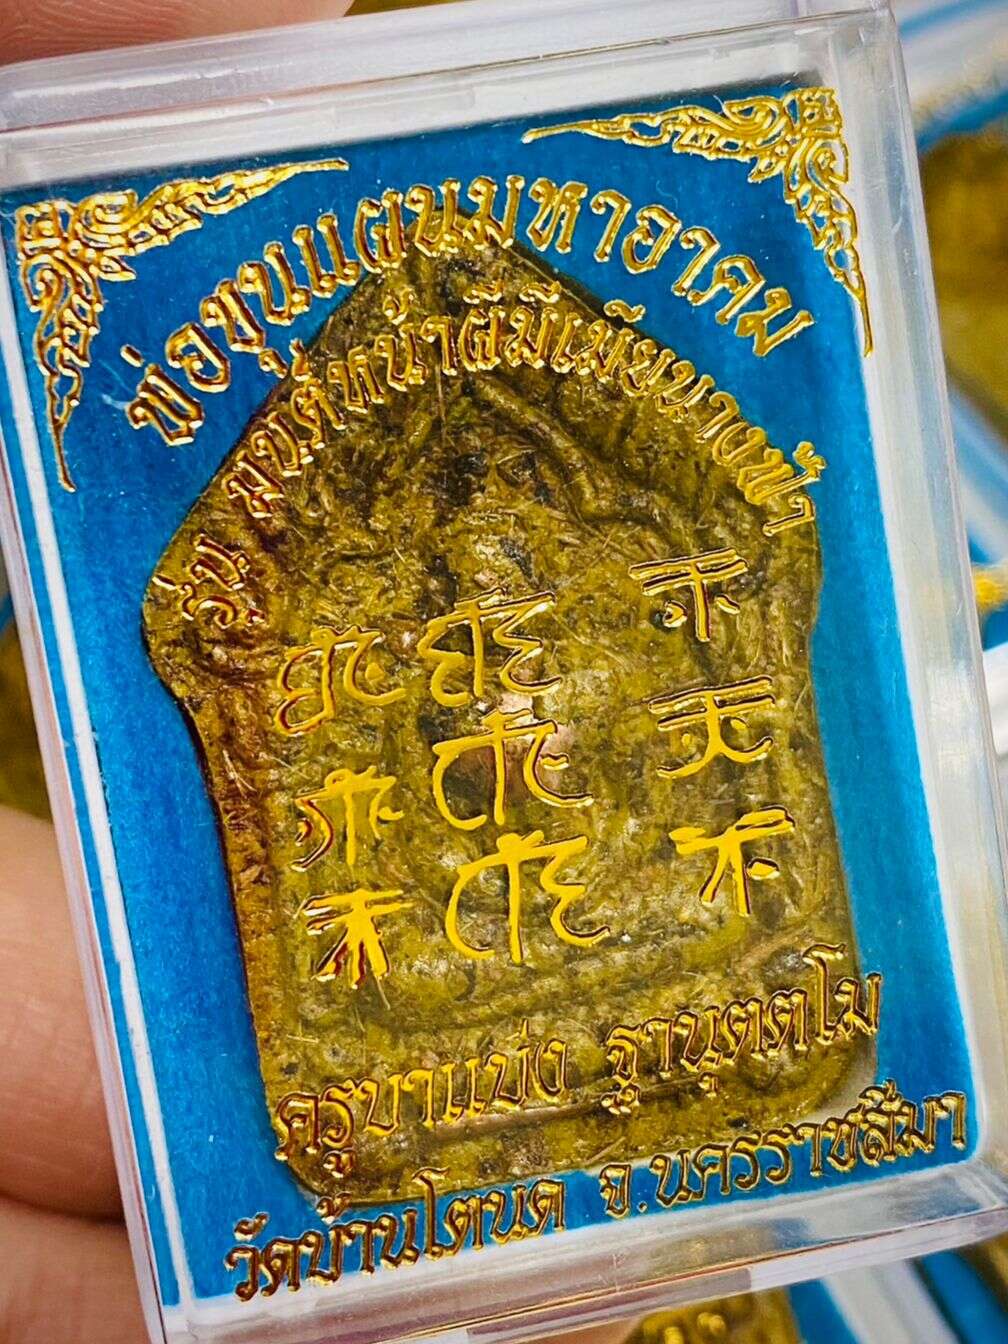 พ่อขุนแผนมหาอาคม
รุ่น มนต์หน้าผีมีเมียนางฟ้า
ครูบาแบ่ง ฐานุตตโม
วัดบ้านโตนด จ.นครราชสีมา